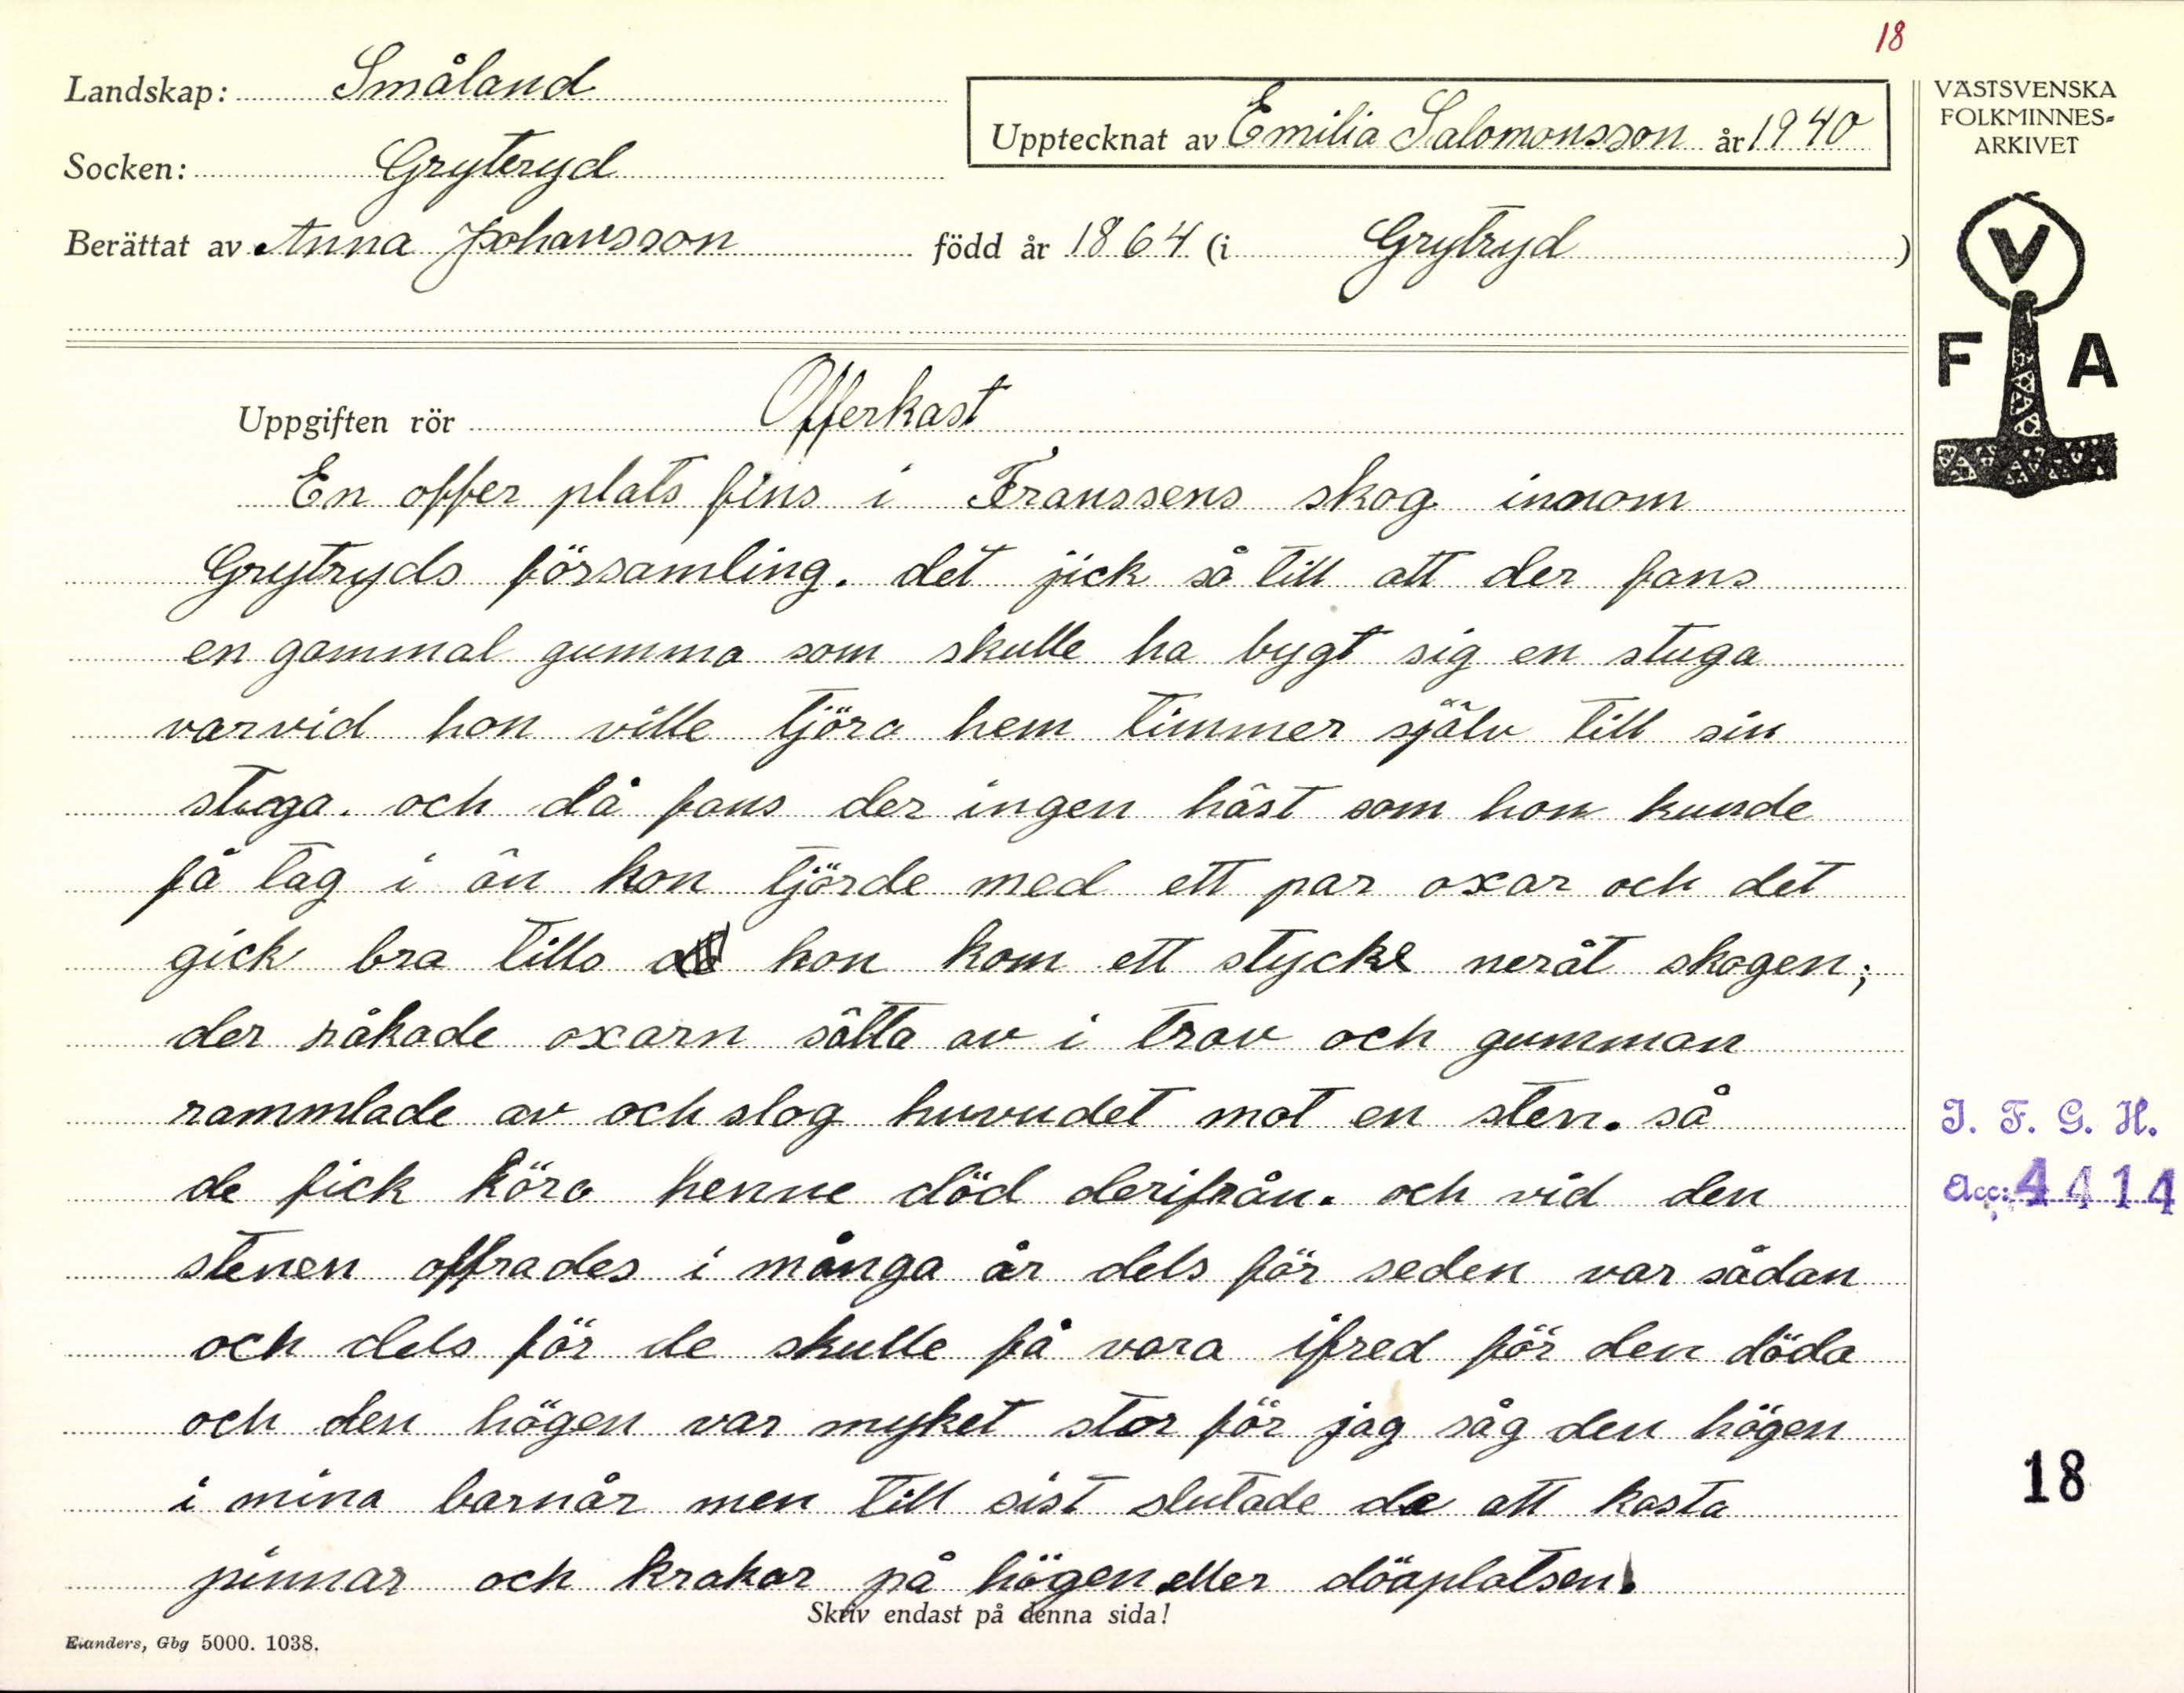 18
Landskap: Småland
Upptecknat av Emilia Salomonsson år 1940
VÄSTSVENSKA
FOLKMINNES=
ARKIVET
Socken: Gryteryd
Berättat av Anna Johansson född år 1864 (i Grytryd)
V
F A
Uppgiften rör Offerkast
En offer plats fins i Franssens skog innom
Grytryds församling. det jick så till att der fans
en gammal gumma som skulle ha bygt sig en stuga
varvid hon ville tjöra hem timmer själv till sin
stuga. och då fans der ingen häst som hon kunde
få tag i än hon tjörde med ett par oxar och det
gick bra tills hon kom ett stycke neråt skogen;
der råkade oxarn sätta av i trav och gumman
rammlade av och slog huvudet mot en sten. så
de fick köra henne död derifrån. och vid den
stenen offrades i många år dels för seden var sådan
och dels för de skulle få vara ifred för den döda
och den högen var myket stor för jag såg den högen
i mina barnår men till sist slutade de att kasta
pinnar och krakar på högen eller döaplatsen.
Skriv endast på denna sida!
Elanders, Gbg 5000. 1038.
I. F. G. H.
Acc: 4414
18